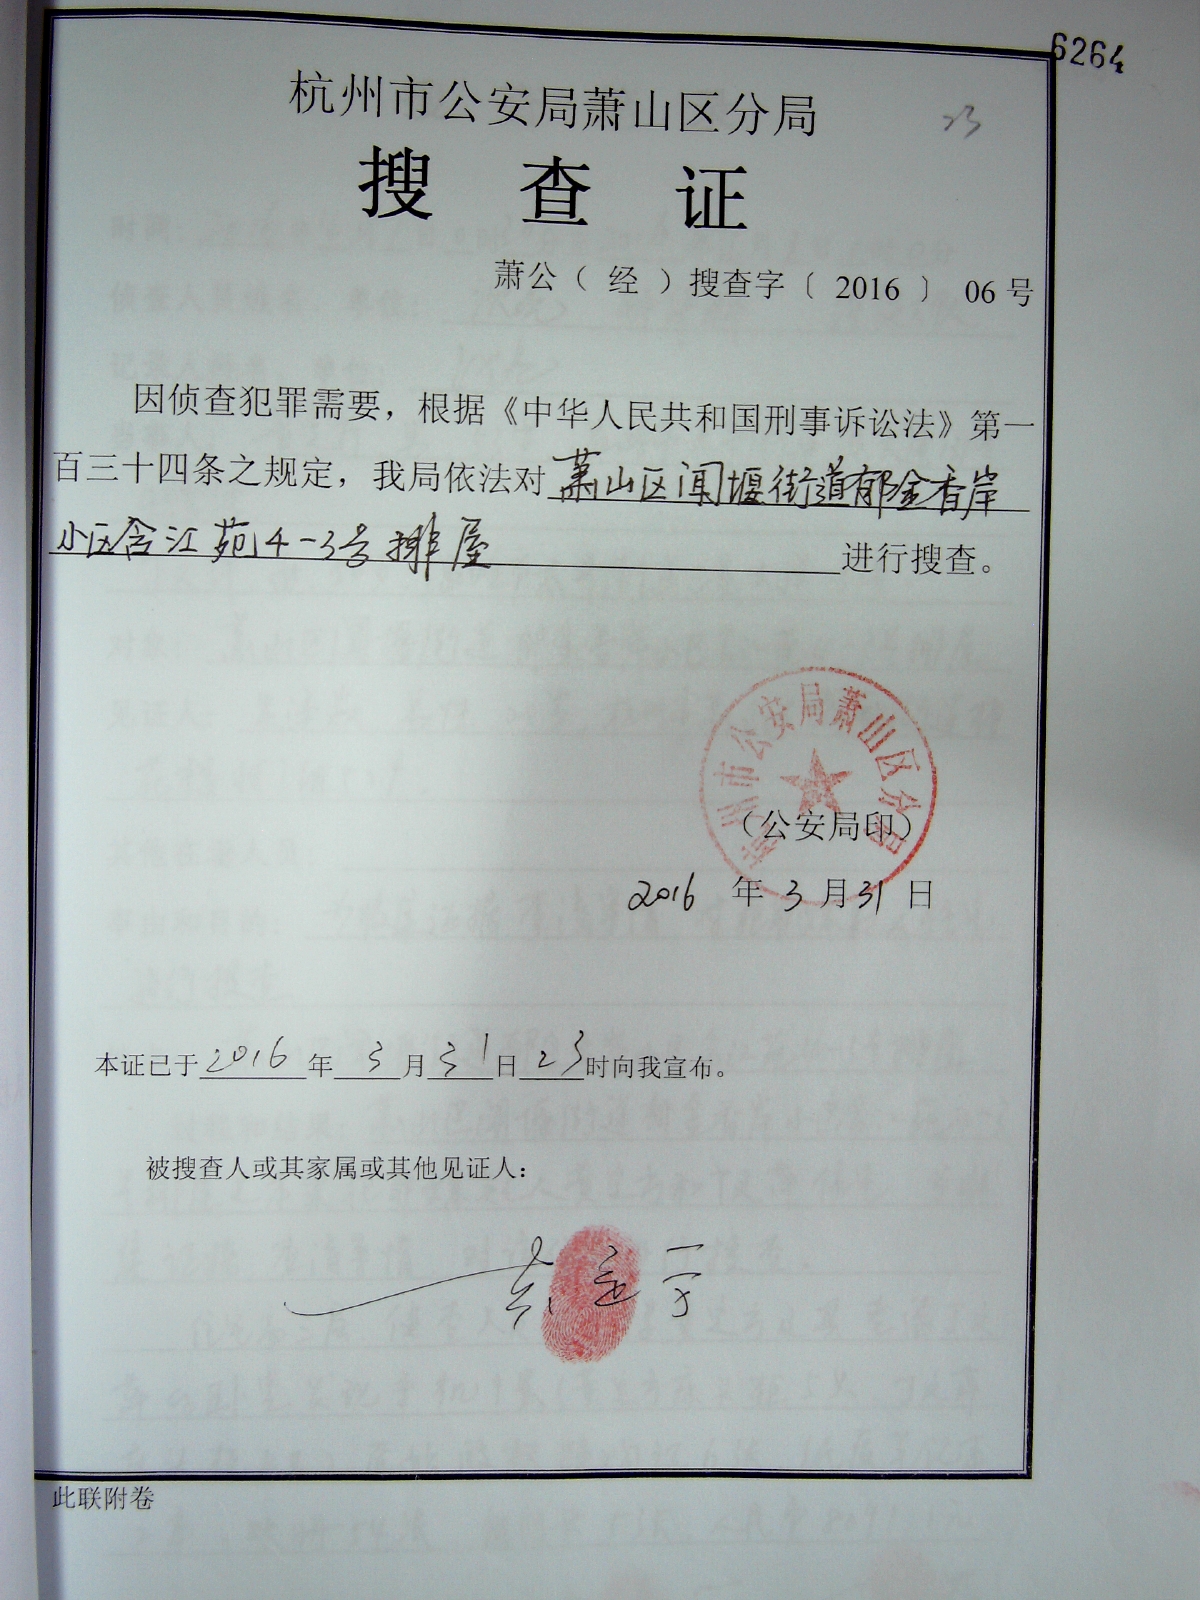 6264
23
杭州市公安局萧山区分局
搜查证
萧公（经）搜查字〔2016〕06号
因侦查犯罪需要，根据《中华人民共和国刑事诉讼法》第一
百三十四条之规定，我局依法对萧山区闻堰街道郁金香岸
小区含江苑4-3号排屋进行搜查。
杭州市公安局萧山区分局
（公安局印）
2016年3月31日
本证已于2016年3月31日23时向我宣布。
被搜查人或其家属或其他见证人：
此联附卷